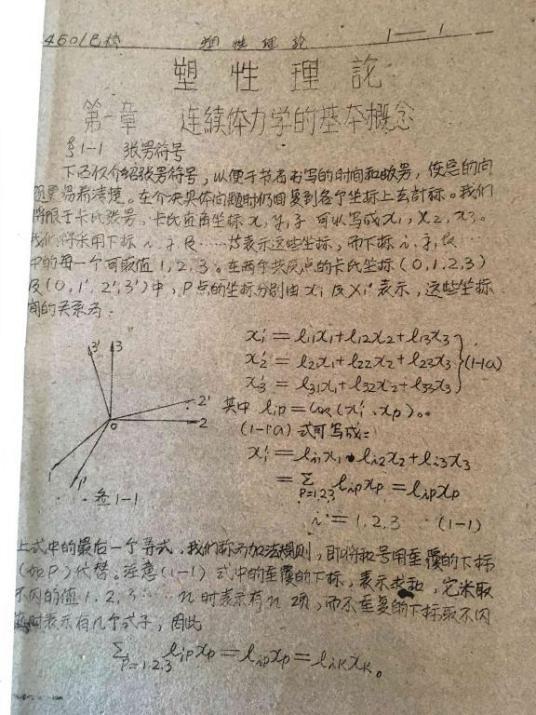 4601/巴棱 塑性理论 1—1
塑性理论
第一章 连续体力学的基本概念
§1-1 张劳符号
下己仅介绍张劳符号,以便于节省书写的时间和版劳,使总的问
题更易看清楚。在介决具体问题时仍回复到各个坐标上去计标。我们
将限于卡氏张劳。卡氏直角坐标 x, y, z 可以写成 x₁, x₂, x₃。
我们将采用下标 i、j、k……等表示这些坐标,而下标 i、j、k…
中的每一个可取值 1, 2, 3。在两个共原点的卡氏坐标 (0,1,2,3)
及(0,1′,2′,3′)中,P点的坐标分别由 xᵢ 及 xᵢ′ 表示,这些坐标
间的关系为:
x₁′ = l₁₁x₁+l₁₂x₂+l₁₃x₃
x₂′ = l₂₁x₁+l₂₂x₂+l₂₃x₃ (1-1a)
x₃′ = l₃₁x₁+l₃₂x₂+l₃₃x₃
其中 lᵢₚ = cos(xᵢ′、xₚ)。
(1-1a)式可写成:
xᵢ′ = lᵢ₁x₁+lᵢ₂x₂+lᵢ₃x₃
= Σ lᵢₚxₚ = lᵢₚxₚ
P=1,2,3
i = 1, 2, 3 (1-1)
3′ 3
2′
0 2
1 1′
图1-1
上式中的最后一个等式,我们称为加法规则,即将和号用重复的下标
(如P)代替。注意(1-1)式中的重复的下标,表示求和,它采取
不同的值 1, 2, 3……n 时表示有 n 项,而不重复的下标取不同
值时表示有几个式子,因此
Σ lᵢₚxₚ = lᵢₚxₚ = lᵢₖxₖ。
P=1,2,3